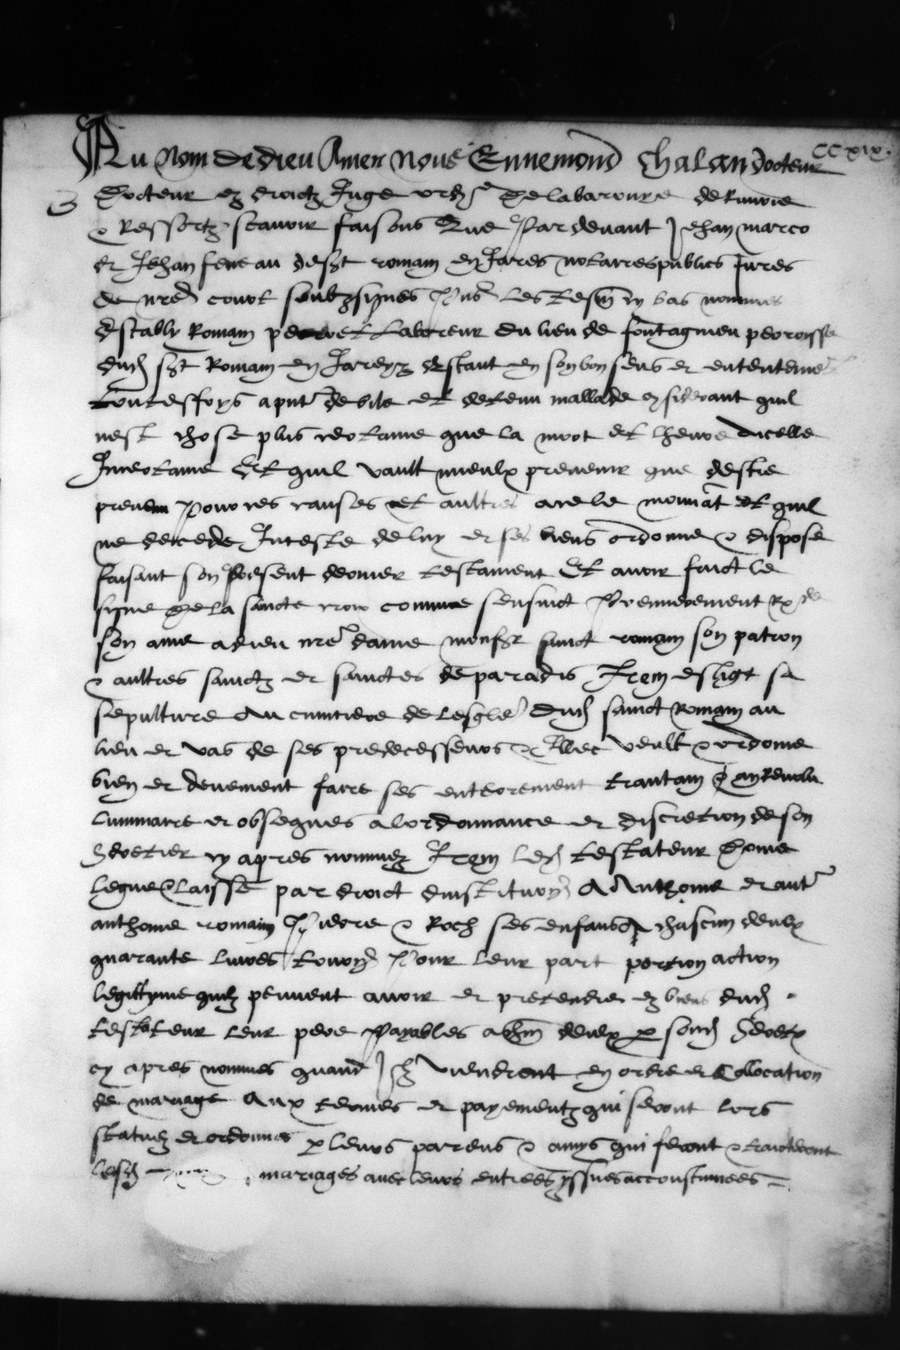 CCxix.
Au Nom de dieu Amen Nous Ennemond Chalan docteur
docteur ez droictz Juge ord^re de la baronye de Riverie
& Ressortz scavoir faisons Que Par devant Jehan marco
et Jehan feneau de s^zt romain en Jares notaires publics jures
de nred court soubzsignes Pns les tesm cy bas nommes
Estably Romain perret Laboreur du lieu de fontagnieu perroisse
dud s^zt Romain en Jareyz Estant en son bon sens et entendeme
toutesfoys apnt debile et detenu mallade considerant quil
nest chose plus certaine que la mort et lheure dicelle
Incertaine Et quil vault mieulx prevenir que destre
prevenu Pour ces causes et aultres a ce le mouvat et quil
ne decede Inteste de luy et ses biens ordonne & dispose
faisant son present dernier testament Et avoir faict le
signe de la saincte croix comme sensuict Premierement
son ame a dieu nre dame mons^r sainct romain son patron
& aultres sainctz et sainctes de paradis Item eslict sa
sepulture au cimetiere de lesglise dud sainct Romain au
lieu et vas de ses predecesseurs & Illec veult & ordonne
bien et deuement faire ses enterrement trantain & an revolu
luminaire et obseques a lordonnance et discretion de son
heretier cy apres nomme Item led testateur donne
legue & laisse par droict dinstitution A Anthoine et aut^r
anthoine romain Pierre & Roch ses enfans A chascun deulx
quarante livres tourn Pour leur part portion action
legittyme quilz peuvent avoir et pretendre ez biens dud
testateur leur pere Payables a chun deulx p son heretr
cy apres nommes quand Ilz viendront en ordre et Collocation
de mariage Aux termes et payementz qui seront lors
statuez et ordonnes p leurs parrens & amys qui feront & traicteront
lesd mariages avec leurs entrees yssues accoustumees